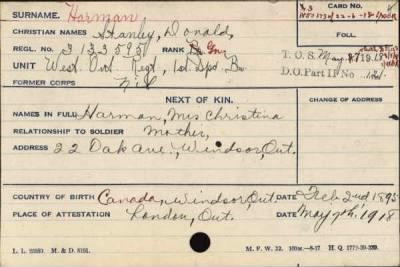 SURNAME. Harman CARD No.
CHRISTIAN NAMES Stanley, Donald, FOLL.
REGL. NO. 3133595 RANK
UNIT West. Ont. Regt, 1st. Dpo. Bn. T.O.S. May
FORMER CORPS Nil D.O. Part II No. 121
NEXT OF KIN. CHANGE OF ADDRESS
NAMES IN FULL Harman, Mrs Christina
RELATIONSHIP TO SOLDIER Mother,
ADDRESS 22 Oak Ave., Windsor, Ont.
COUNTRY OF BIRTH Canada, Windsor, Ont. DATE Feb. 2nd 1895
PLACE OF ATTESTATION London, Ont. DATE May 7th, 1918
M. F. W. 22.